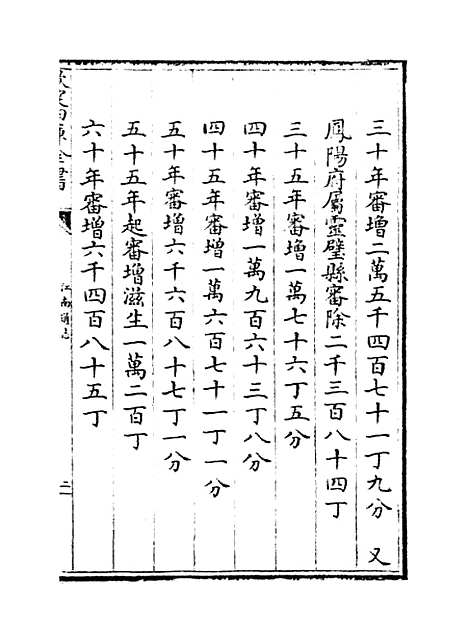 三十年審増二萬五千四百七十一丁九分　又
鳳陽府屬靈璧縣審除二千三百八十四丁
三十五年審増一萬七十六丁五分
四十年審增一萬九百六十三丁八分
四十五年審增一萬六百七十一丁一分
五十年審增六千六百八十七丁一分
五十五年起審增滋生一萬二百丁
六十年審增六千四百八十五丁
欽定四庫全書
江南通志
二